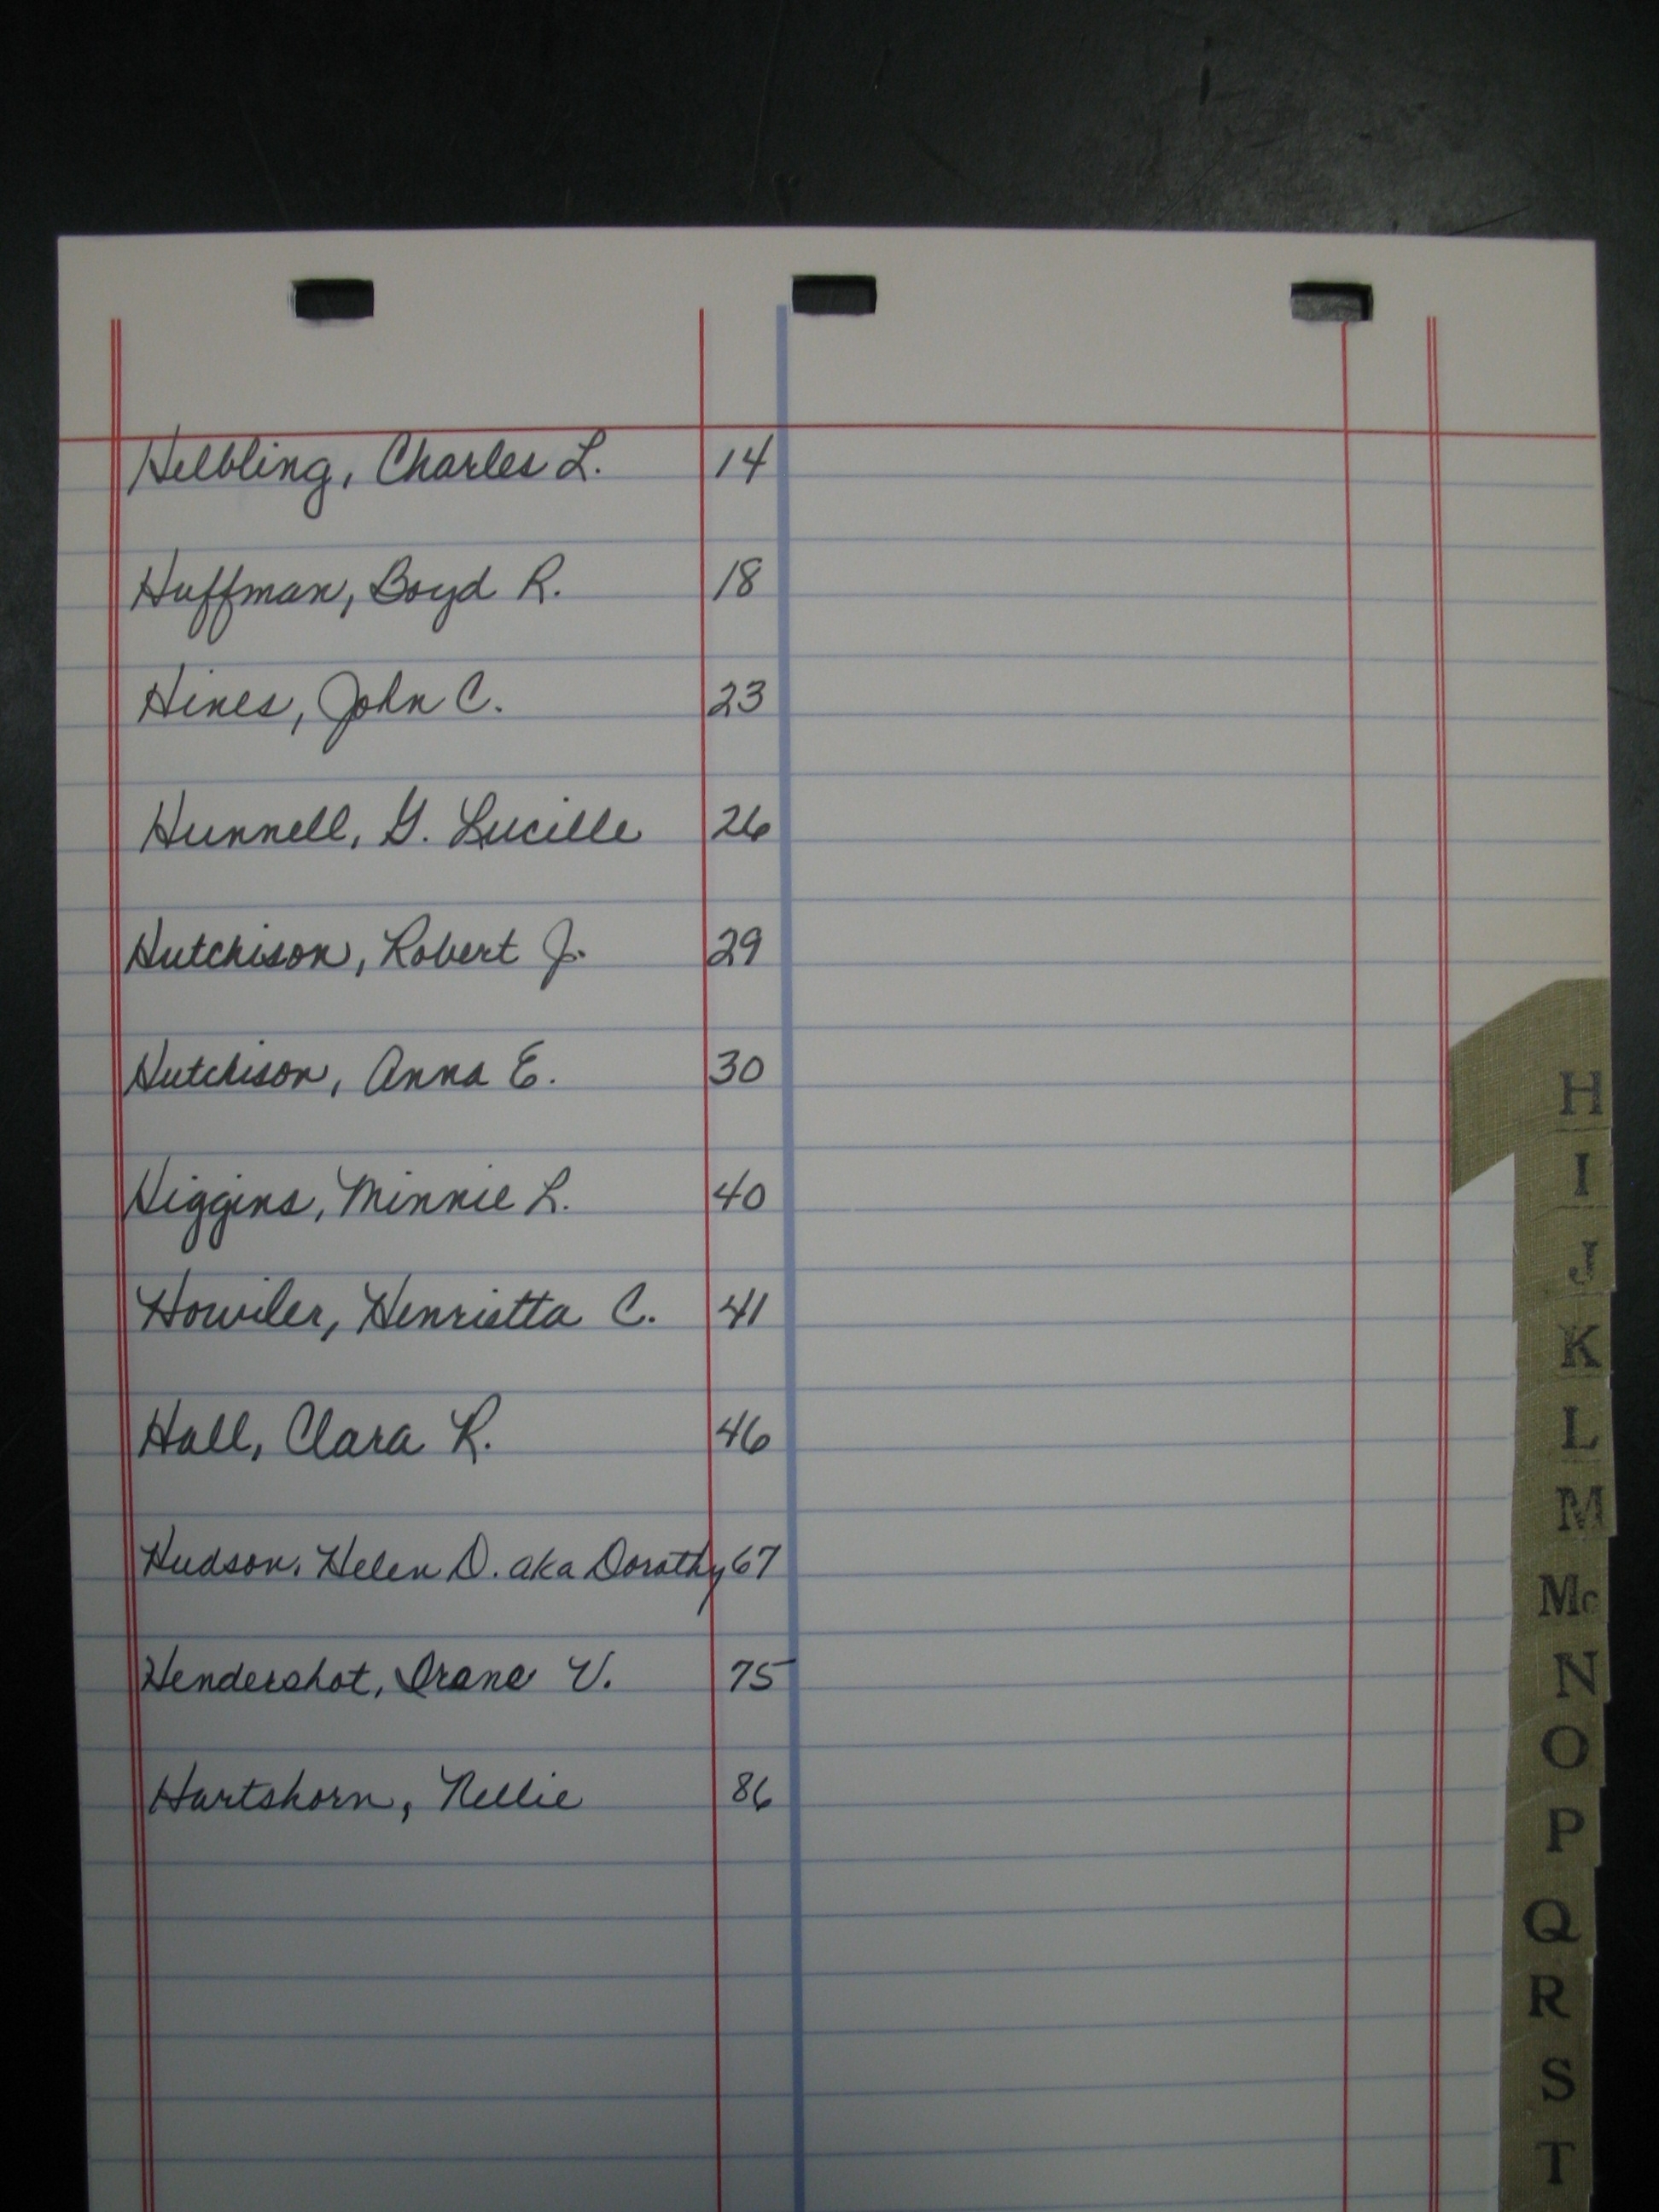 Helbling, Charles L. 14
Huffman, Boyd R. 18
Hines, John C. 23
Hunnell, G. Lucille 26
Hutchison, Robert J. 29
Hutchison, Anna E. 30
Higgins, Minnie L. 40
Howiler, Henrietta C. 41
Hall, Clara R. 46
Hudson, Helen D. aka Dorothy 67
Hendershot, Irane V. 75
Hartshorn, Nellie 86
H
I
J
K
L
M
Mc
N
O
P
Q
R
S
T